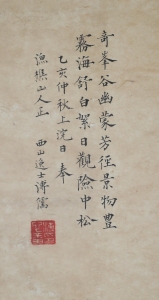 奇峯谷幽蒙芳徑景物豊
霧海舒白絮日觀險中松
乙亥仲秋上浣日奉
漁樵山人正
西山逸士溥儒